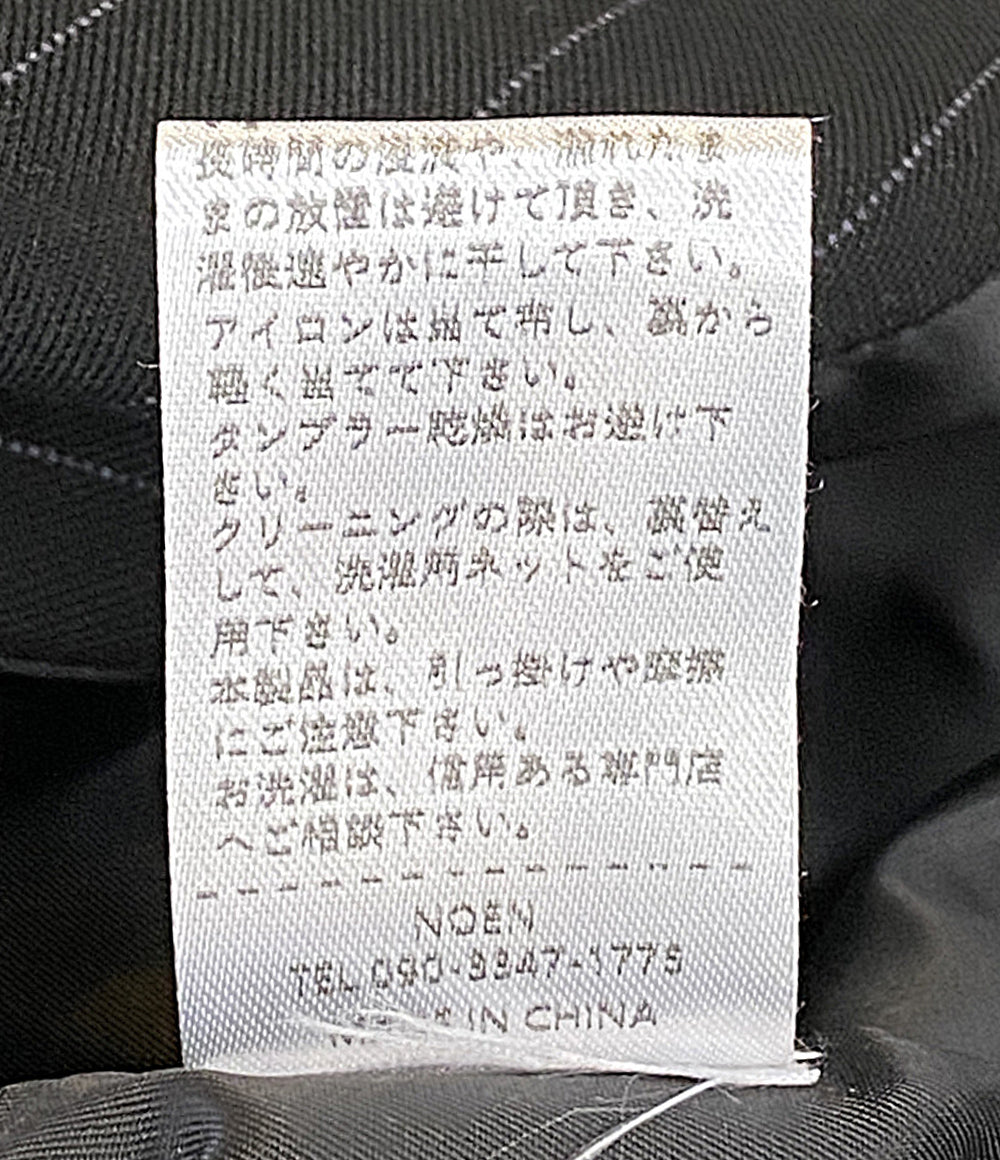 長時間の浸漬や、濡れたま
まの放置は避けて頂き、洗
濯後速やかに干して下さい。
アイロンは当て布し、裏から
軽く当てて下さい。
タンブラー乾燥はお避け下
さい。
クリーニングの際は、裏替え
して、洗濯用ネットをご使
用下さい。
本製品は、引っ掛けや摩擦
にご注意下さい。
お洗濯は、信用ある専門店
へご相談下さい。
NOEN
TEL 090-9347-1775
IN CHINA